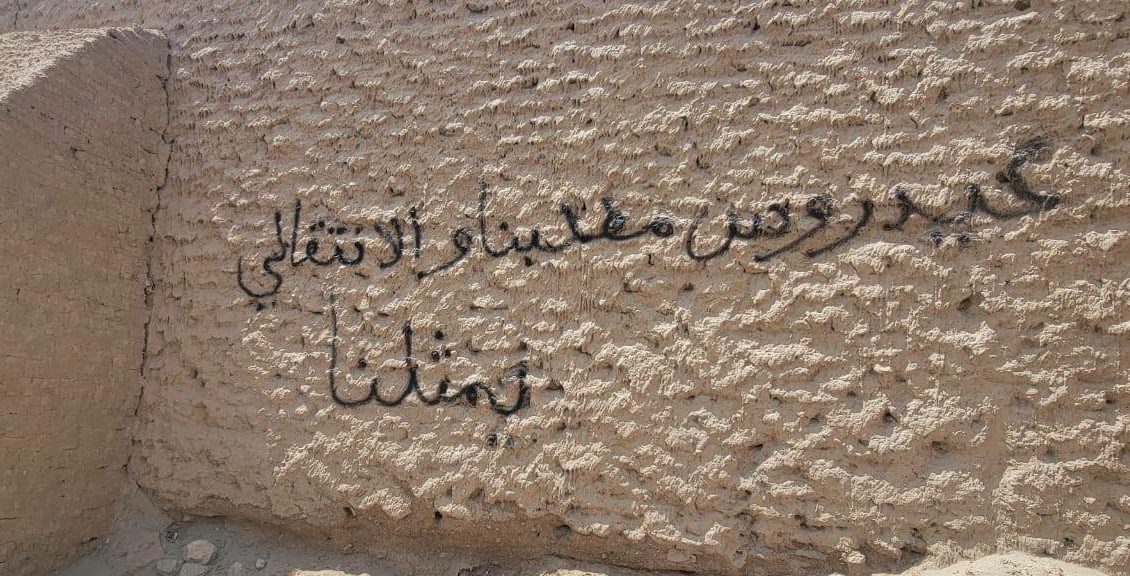 عيدروس مطلبنا و الانتقالي
يمثلنا